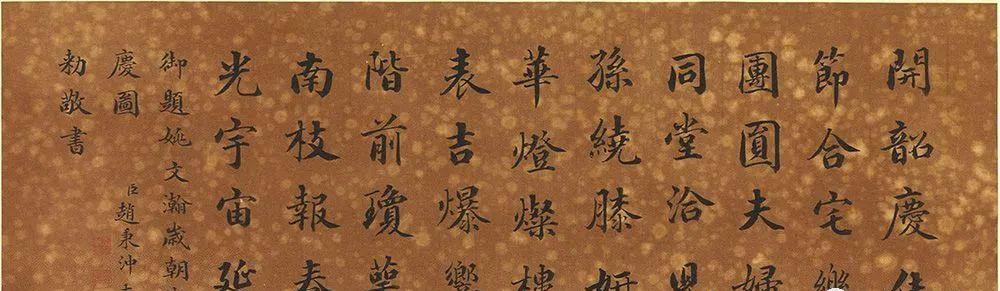 開韶慶佳
節合宅樂
團圓夫婦
同堂洽兒
孫繞膝妍
華燈燦樓
表吉爆響
階前瓊
南枝報春
光宇宙延
御題姚文瀚歲朝
慶圖
臣趙秉沖
勑敬書